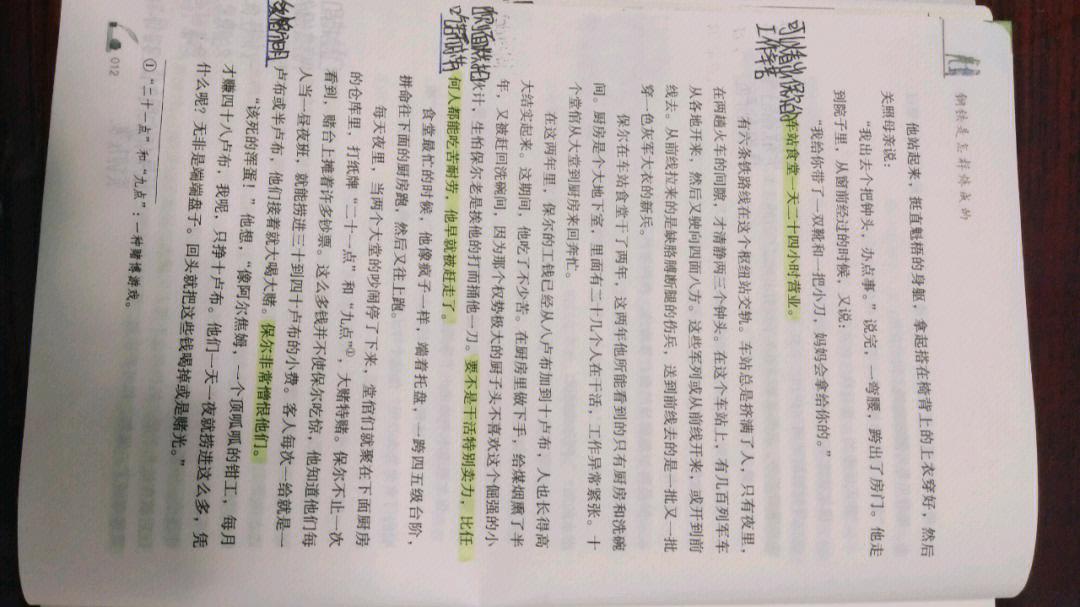 钢铁是怎样炼成的
他站起来，挺直魁梧的身躯，拿起搭在椅背上的上衣穿好，然后
关照母亲说：
“我出去个把钟头，办点事。”说完，一弯腰，跨出了房门。他走
到院子里，从窗前经过的时候，又说：
“我给你带了一双靴和一把小刀，妈妈会拿给你的。”
可以看出保尔的
工作辛苦
车站食堂一天二十四小时营业。
有六条铁路线在这个枢纽站交轨。车站总是挤满了人，只有夜里，
在两趟火车的间隙，才清静两三个钟头。在这个车站上，有几百列军车
从各地开来，然后又驶向四面八方。这些军列或从前线开来，或开到前
线去。从前线拉来的是缺胳膊断腿的伤兵，送到前线去的是一批又一批
穿一色灰军大衣的新兵。
保尔在车站食堂干了两年，这两年他所能看到的只有厨房和洗碗
间。厨房是个大地下室，里面有二十几个人在干活，工作异常紧张。十
个堂倌从大堂到厨房来回奔忙。
在这两年里，保尔的工钱已经从八卢布加到十卢布，人也长得高
大结实起来。这期间，他吃了不少苦。在厨房里做下手，给煤烟熏了半
年，又被赶回洗碗间，因为那个权势极大的厨子头不喜欢这个倔强的小
伙计，生怕保尔老是挨他的打而捅他一刀。要不是干活特别卖力，比任
何人都能吃苦耐劳，他早就被赶走了。
食堂最忙的时候，他像疯子一样，端着托盘，一跨四五级台阶，
拼命往下面的厨房跑，然后又往上跑。
每天夜里，当两个大堂的吵闹停了下来，堂倌们就聚在下面厨房
的仓库里，打纸牌“二十一点”和“九点”①，大赌特赌。保尔不止一次
看到，赌台上摊着许多钞票。这么多钱并不使保尔吃惊，他知道他们每
人当一昼夜班，就能捞进三十到四十卢布的小费。客人每次一给就是一
卢布或半卢布，他们接着就大喝大赌。保尔非常憎恨他们。
“该死的浑蛋！”他想，“像阿尔焦姆，一个顶呱呱的钳工，每月
才赚四十八卢布，我呢，只挣十卢布。他们一天一夜就捞进这么多，凭
什么呢？无非是端端盘子。回头就把这些钱喝掉或是赌光。”
①“二十一点”和“九点”：一种赌博游戏。
012